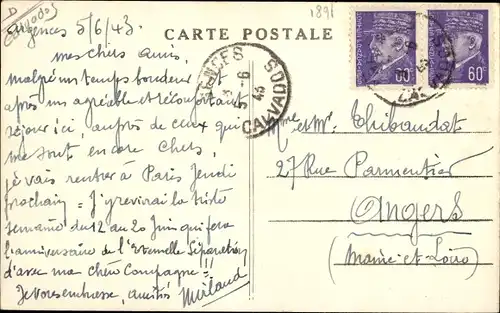 Calvados
1891
CARTE POSTALE
Argences 5/6/43.
mes chers amis,
malgré un temps boudeur et
après un agréable et réconfortant
séjour ici, auprès de ceux qui
me sont encore chers,
je vais rentrer à Paris Jeudi
prochain = J'y revivrai la triste
semaine du 12 au 20 Juin qui fera
l'anniversaire de l'Eternelle Séparation
d'avec ma chère Compagne =
Je vous embrasse, amitiés
ARGENCES
5-6
43
CALVADOS
60c
60c
Mme et Mr. Thibaudat
27 Rue Parmentier
Angers
(Maine-et-Loire)